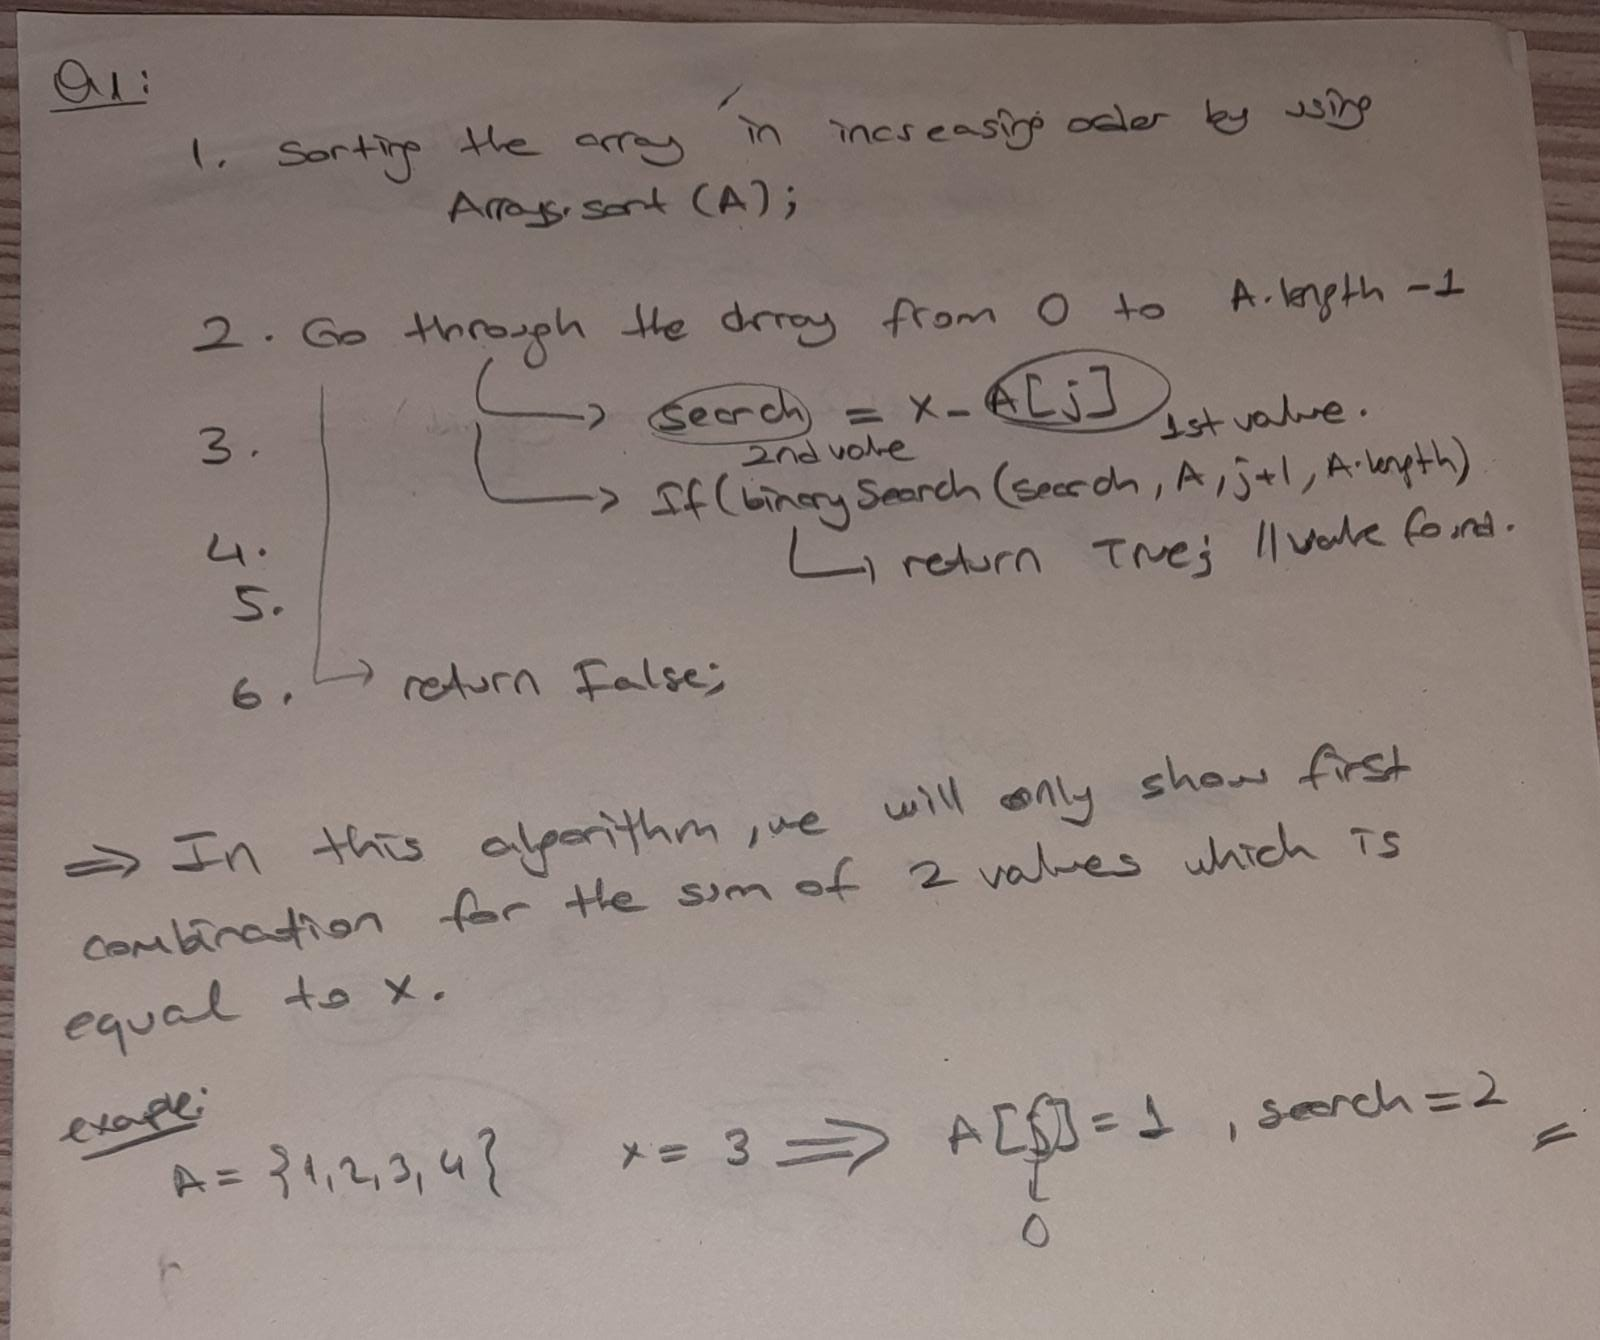 Q1:
1. Sorting the array in increasing order by using
Arrays.sort (A);
2. Go through the array from 0 to A.length -1
3. search = x - A[j] 1st value.
2nd value
If (binarySearch (search, A, j+1, A.length)
4. return True; // value found.
5.
6. return False;
=> In this algorithm, we will only show first
combination for the sum of 2 values which is
equal to x.
example:
A = {1,2,3,4} x = 3 => A[j] = 1 , search = 2
0